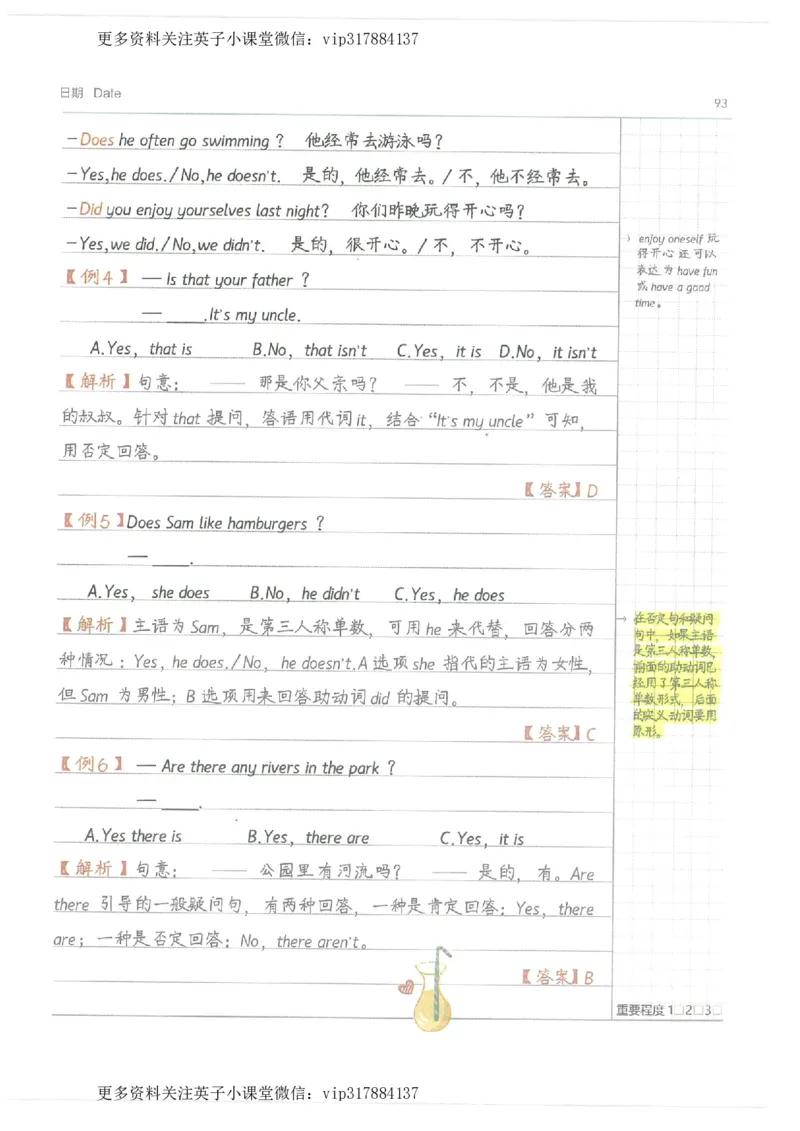 更多资料关注英子小课堂微信：vip317884137
日期 Date
93
-Does he often go swimming？ 他经常去游泳吗？
-Yes,he does./No,he doesn't. 是的，他经常去。/不，他不经常去。
-Did you enjoy yourselves last night? 你们昨晚玩得开心吗？
-Yes,we did./No,we didn't. 是的，很开心。/不，不开心。
→ enjoy oneself 玩
得开心 还可以
表达为 have fun
或 have a good
time。
【例4】 — Is that your father？
— ____.It's my uncle.
A.Yes，that is B.No，that isn't C.Yes，it is D.No，it isn't
【解析】句意： —— 那是你父亲吗？ —— 不，不是，他是我
的叔叔。针对that 提问，答语用代词it，结合“It's my uncle”可知，
用否定回答。
【答案】D
【例5】Does Sam like hamburgers？
— ____.
A.Yes， she does B.No，he didn't C.Yes，he does
【解析】主语为 Sam，是第三人称单数，可用 he 来代替，回答分两
种情况：Yes，he does./No，he doesn't.A 选项 she 指代的主语为女性，
但 Sam 为男性；B 选项用来回答助动词 did 的提问。
【答案】C
→ 在否定句和疑问
句中，如果主语
是第三人称单数，
前面的助动词已
经用了第三人称
单数形式，后面
的实义动词要用
原形。
【例6】 — Are there any rivers in the park？
— ____.
A.Yes there is B.Yes，there are C.Yes，it is
【解析】句意： —— 公园里有河流吗？ —— 是的，有。Are
there 引导的一般疑问句，有两种回答，一种是肯定回答：Yes，there
are；一种是否定回答：No，there aren't。
【答案】B
重要程度 1□2□3□
更多资料关注英子小课堂微信：vip317884137